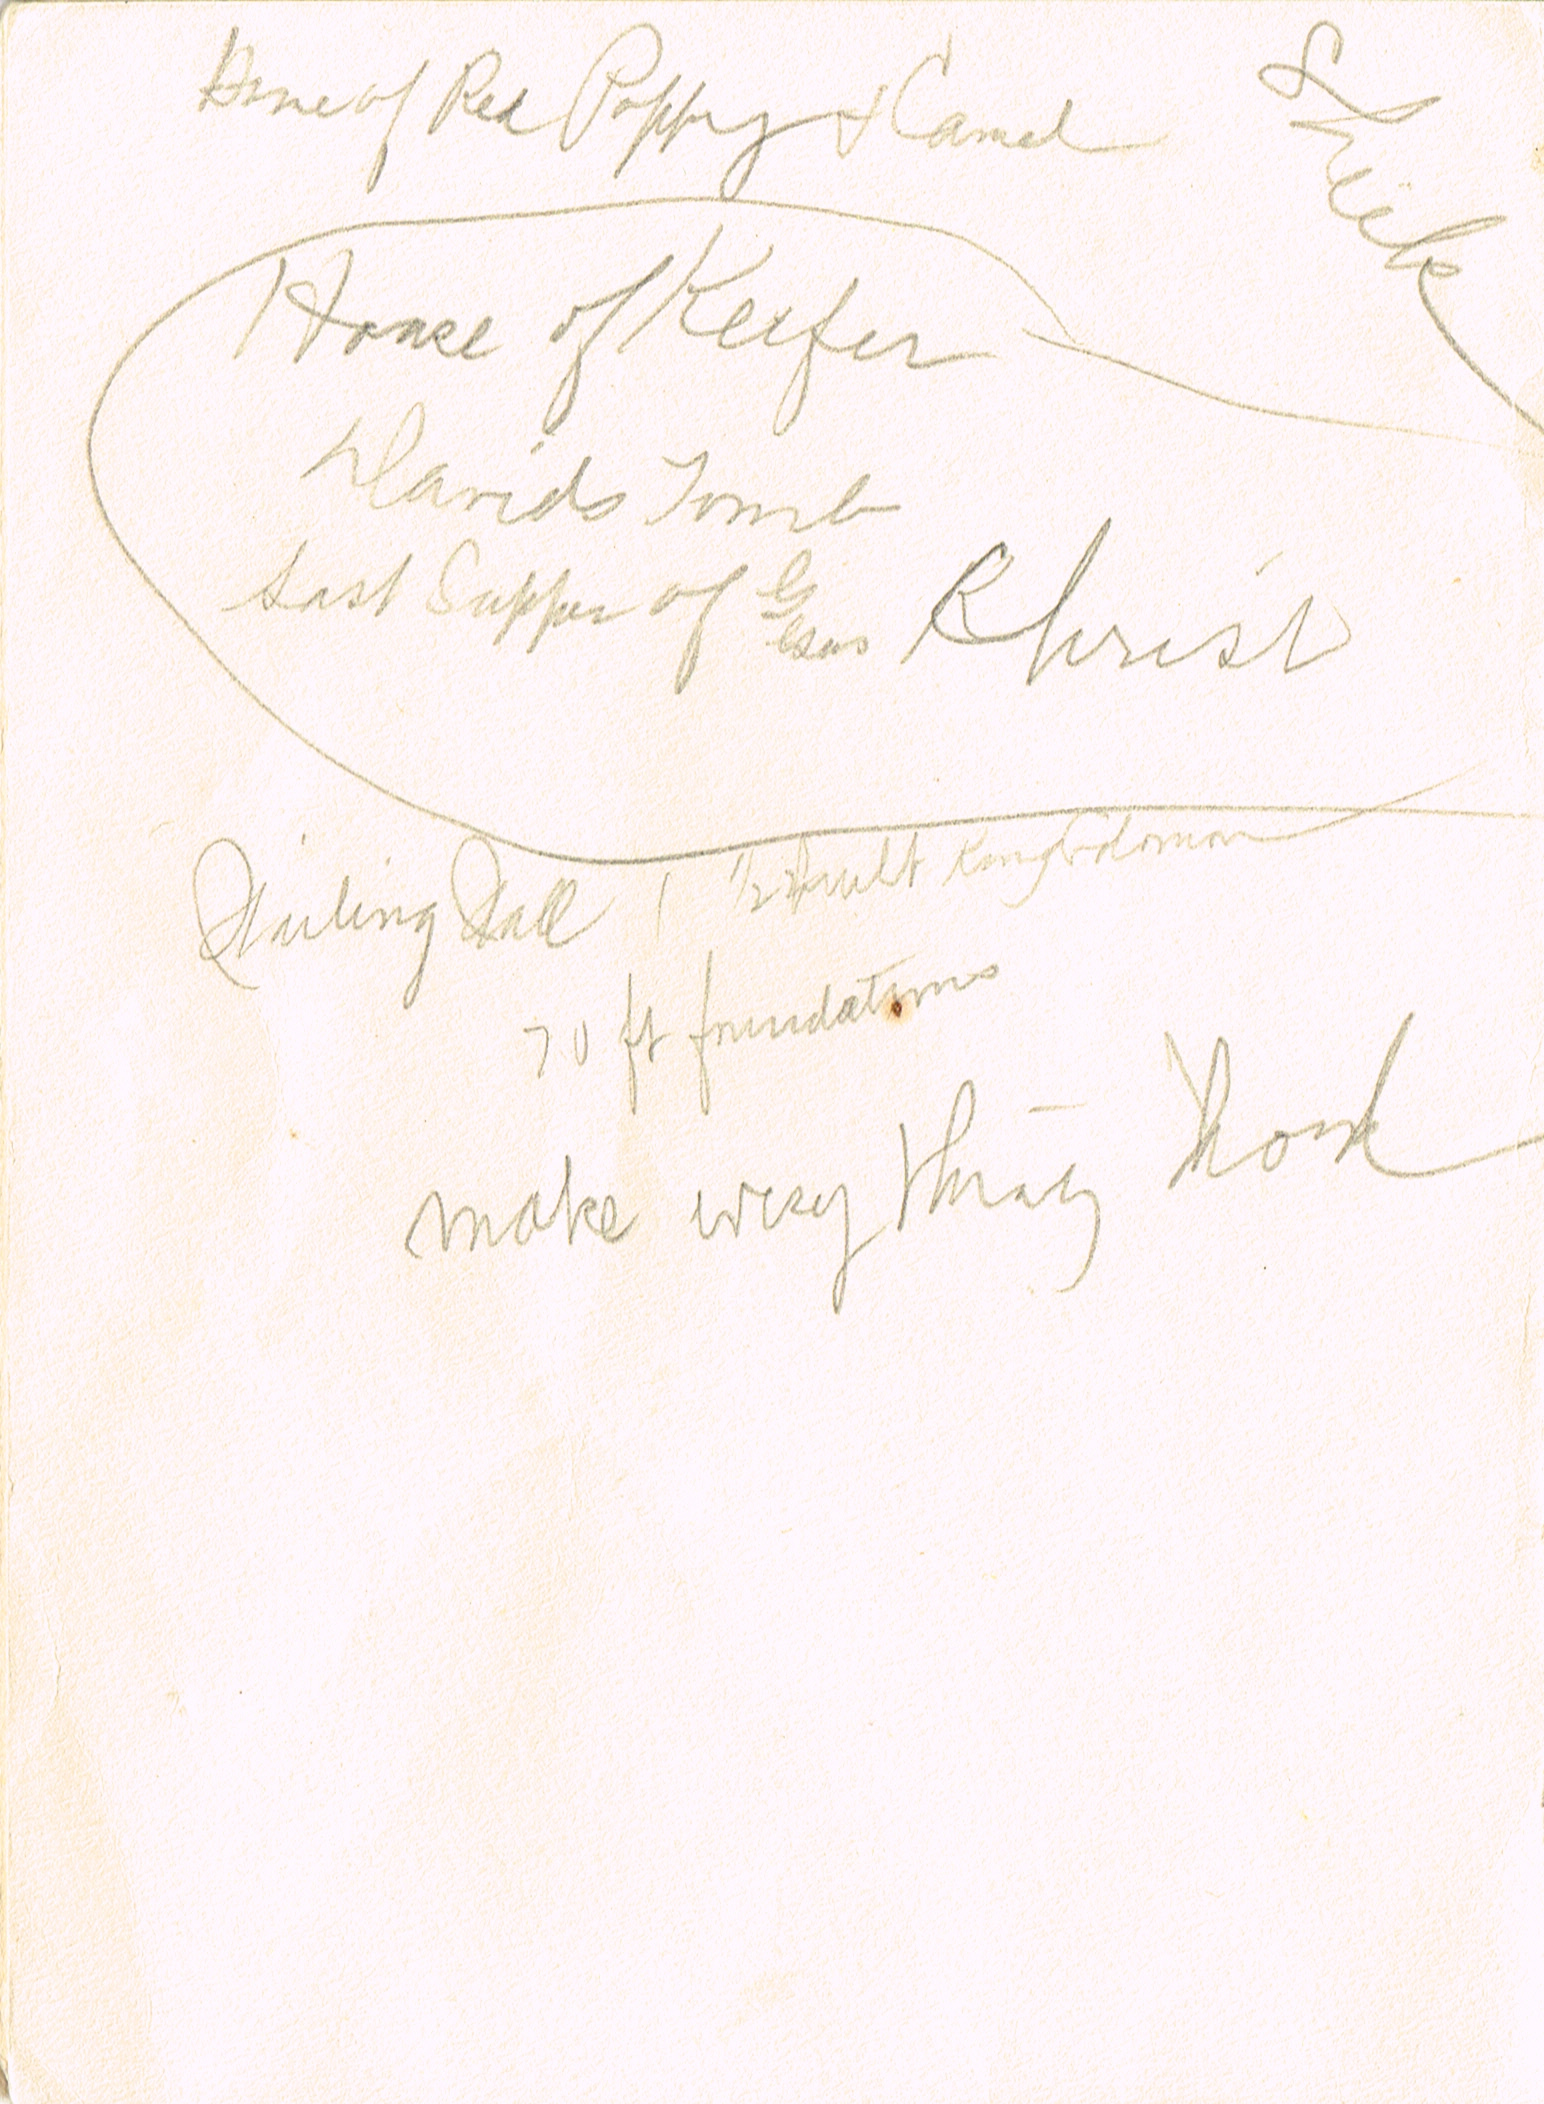 Home of Red Poppy & Camel
House of Keefer
Davids Tomb
Last Supper of
Christ
Wailing Wall 1/2 built King Solomon
70 ft foundations
make every thing